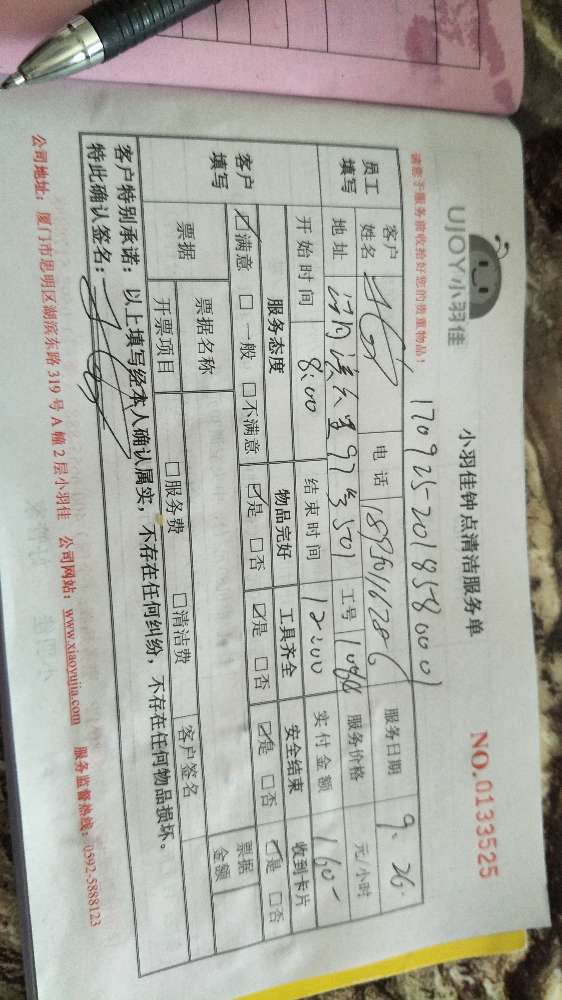 UJOY小羽佳
小羽佳钟点清洁服务单
NO.0133525
请您于服务前收拾好您的贵重物品!
1709252018580001
员工填写
客户姓名
电话
服务日期 9.26.
地址
97号501
工号
服务价格 元/小时
开始时间 8:00
结束时间 12:00
实付金额 160-
客户填写
服务态度 物品完好 工具齐全 安全结束 收到卡片
☑满意 □一般 □不满意 ☑是 □否 ☑是 □否 ☑是 □否 ☑是 □否
票据
票据名称
客户签名
票据金额
开票项目 □服务费 □清洁费
客户特别承诺:以上填写经本人确认属实,不存在任何纠纷,不存在任何物品损坏。
特此确认签名:
公司地址:厦门市思明区湖滨东路 319 号 A 幢 2 层小羽佳 公司网站:www.xiaoyujia.com 服务监督热线:0592-5888123